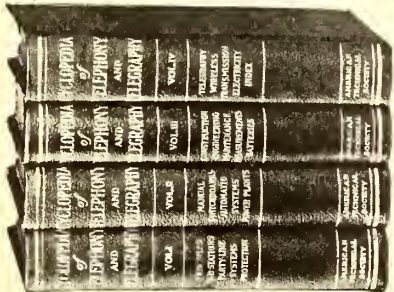 CLOPEDIA
of
ELEPHONY
AND
ELEGRAPHY
VOL.IV
TELEGRAPHY
WIRELESS
TRANSMISSION
ELECTRICITY
INDEX
AMERICAN
TECHNICAL
SOCIETY
CLOPEDIA
of
ELEPHONY
AND
ELEGRAPHY
VOL.III
CONSTRUCTION
ENGINEERING
MAINTENANCE
MEASUREMENTS
BATTERIES
AN
SOCIETY
CLOPEDIA
of
ELEPHONY
AND
ELEGRAPHY
VOL.II
MANUAL
SWITCHBOARDS
AUTOMATIC
SYSTEMS
POWER PLANTS
AMERICAN
TECHNICAL
SOCIETY
CLOPEDIA
of
ELEPHONY
AND
ELEGRAPHY
VOL.I
PARTY-LINE
SYSTEMS
PROTECTION
AMERICAN
TECHNICAL
SOCIETY